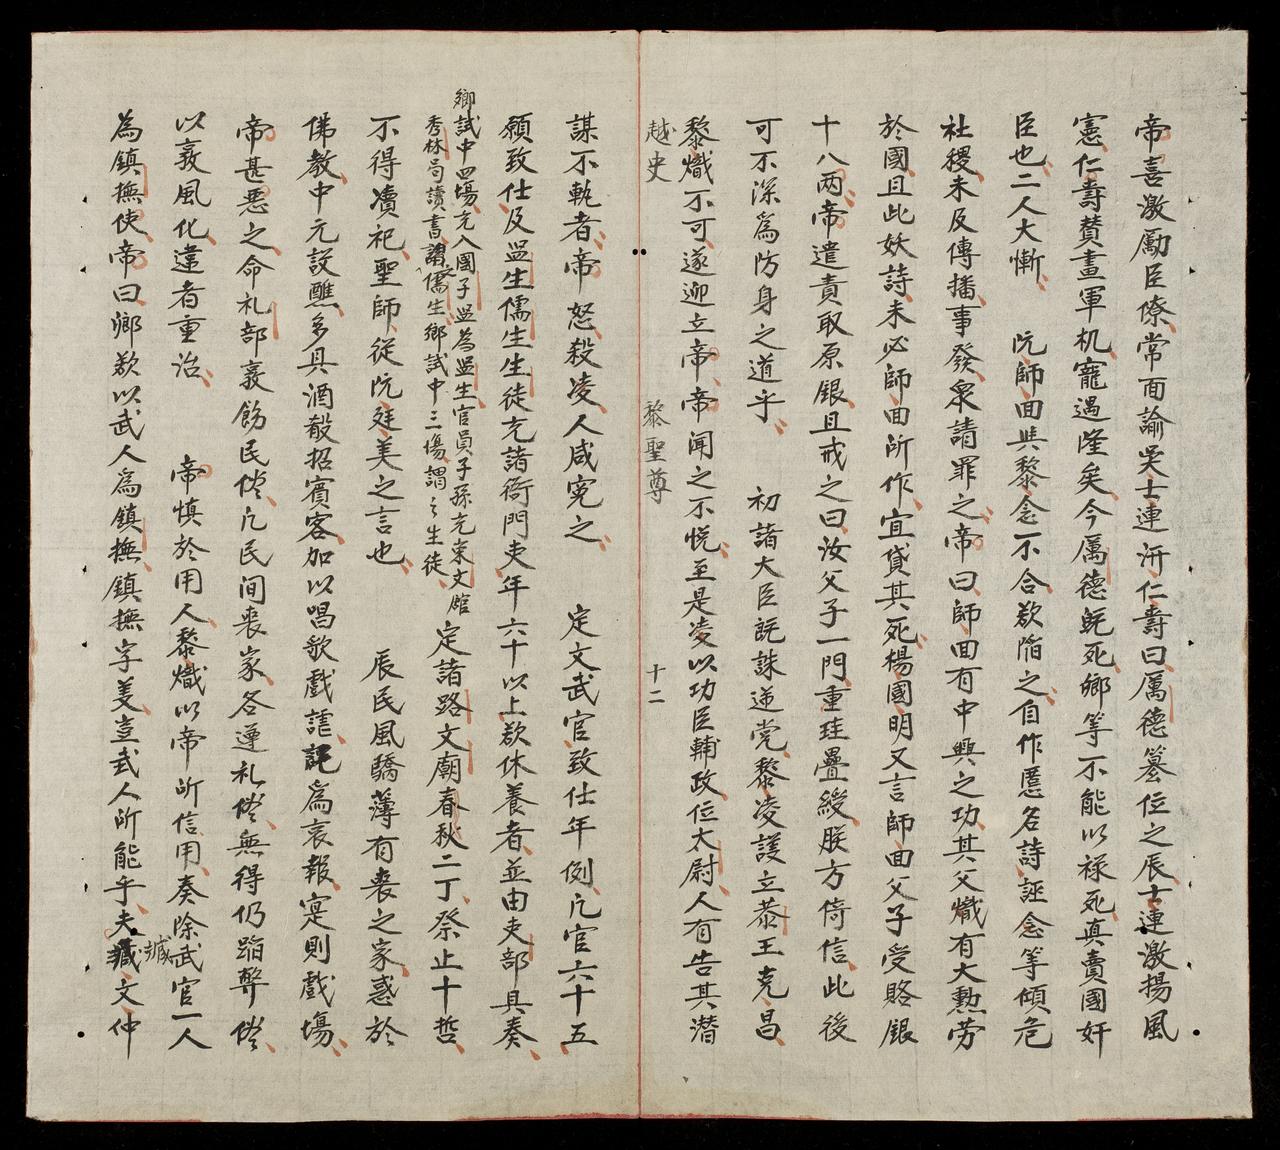 帝喜激勵臣僚常面諭吳士連洴仁壽曰厲德篡位之辰士連激揚風
憲仁壽贊畫軍机寵遇隆矣今厲德既死鄉等不能以祿死真賣國奸
臣也二人大慚 阮師囬與黎念不合欲陷之自作匿名詩誣念等傾危
社稷未及傳播事發衆請罪之帝曰師囬有中興之功其父熾有大勲劳
於國且此妖詩未必師囬所作宜貸其死楊國明又言師囬父子受賂銀
十八两帝遣責取原銀且戒之曰汝父子一門重珪疊綬朕方倚信此後
可不深爲防身之道乎 初諸大臣既誅逆党黎凌謀立恭王克昌
黎熾不可遂迎立帝帝闻之不悦至是凌以功臣輔政位太尉人有告其潜
越史 黎聖尊 十二
謀不軌者帝怒殺凌人咸寃之 定文武官致仕年例凡官六十五
願致仕及监生儒生生徒充諸衙門吏年六十以上欲休養者並由吏部具奏
鄉試中四場充入國子监為监生官員子孫充崇文館
秀林局讀書謂儒生鄉試中三場謂之生徒
定諸路文廟春秋二丁祭止十哲
不得凟祀聖師從阮廷美之言也 辰民風驕薄有喪之家惑於
佛教中元設醮多具酒殽招賓客加以唱歌戲謔託爲哀報寔則戲塲
帝甚悪之命礼部袞飭民俗凡民间喪家各遵礼俗無得仍蹈弊俗
以袞風化違者重治 帝慎於用人黎熾以帝所信用奏除武官一人
為鎮撫使帝曰鄉欲以武人爲鎮撫鎮撫字羙豈武人所能乎夫臧文仲
臧